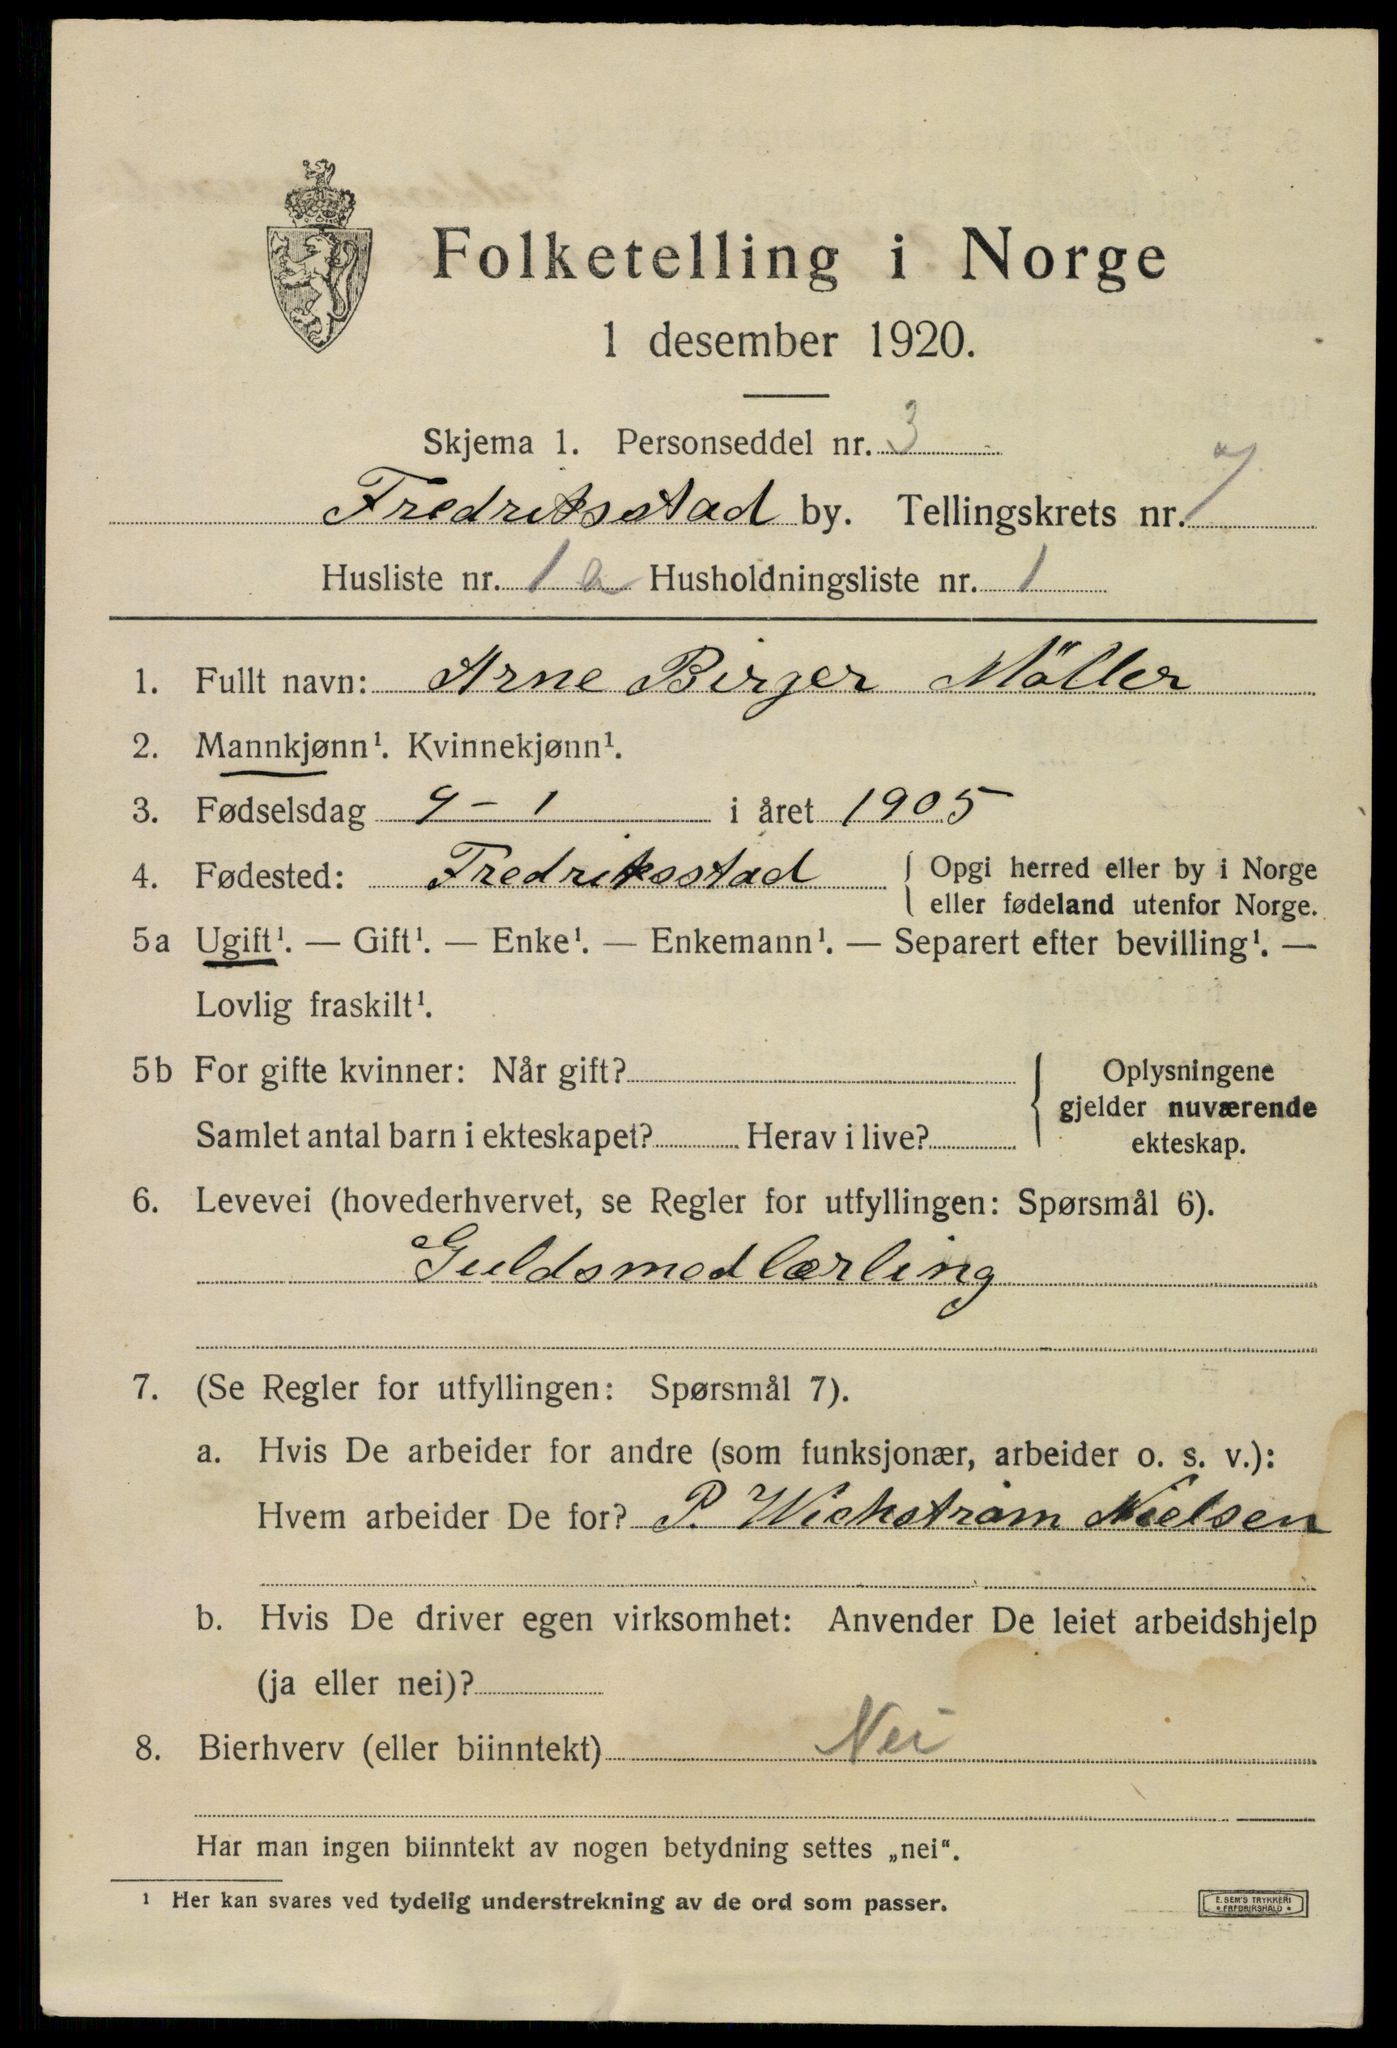 Folketelling i Norge
1 desember 1920.
Skjema 1. Personseddel nr. 3
Fredriksstad by. Tellingskrets nr. 7
Husliste nr. 1 a Husholdningsliste nr. 1
1. Fullt navn: Arne Birger Möller
2. Mannkjønn¹. Kvinnekjønn¹.
3. Fødselsdag 9 - 1 i året 1905
4. Fødested: Fredriksstad { Opgi herred eller by i Norge
eller fødeland utenfor Norge.
5a Ugift¹. — Gift¹. — Enke¹. — Enkemann¹. — Separert efter bevilling¹. —
Lovlig fraskilt¹.
5b For gifte kvinner: Når gift?
Samlet antal barn i ekteskapet? Herav i live?
Oplysningene
gjelder nuværende
ekteskap.
6. Levevei (hovederhvervet, se Regler for utfyllingen: Spørsmål 6).
Guldsmedlærling
7. (Se Regler for utfyllingen: Spørsmål 7).
a. Hvis De arbeider for andre (som funksjonær, arbeider o. s. v.):
Hvem arbeider De for? P. Wickstrøm Nielsen
b. Hvis De driver egen virksomhet: Anvender De leiet arbeidshjelp
(ja eller nei)?
8. Bierhverv (eller biinntekt) Nei
Har man ingen biinntekt av nogen betydning settes „nei“.
¹ Her kan svares ved tydelig understrekning av de ord som passer.
E. SEM'S TRYKKERI
• FREDRIKSHALD •